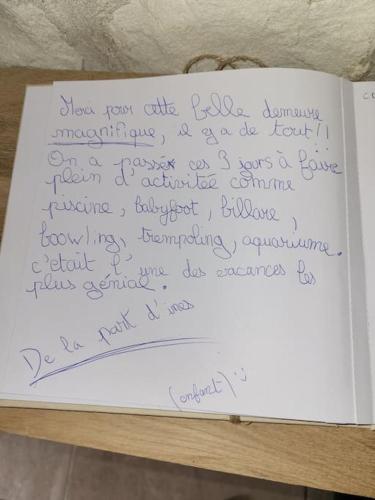 Merci pour cette belle demeure
magnifique, il y a de tout!!
On a passer ces 3 jours à faire
plein d'activitée comme
piscine, babyfoot, billare,
boowling, trempoling, aquariume.
c'etait l'une des vacances les
plus génial.
De la part d'ines
(enfant) :)